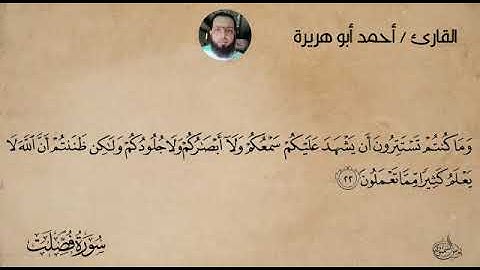 القارئ / أحمد أبو هريرة
وَمَا كُنتُمْ تَسْتَتِرُونَ أَن يَشْهَدَ عَلَيْكُمْ سَمْعُكُمْ وَلَآ أَبْصَٰرُكُمْ وَلَا جُلُودُكُمْ وَلَٰكِن ظَنَنتُمْ أَنَّ ٱللَّهَ لَا
يَعْلَمُ كَثِيرًا مِّمَّا تَعْمَلُونَ ٢٢
سُورَةُ فُصِّلَتْ